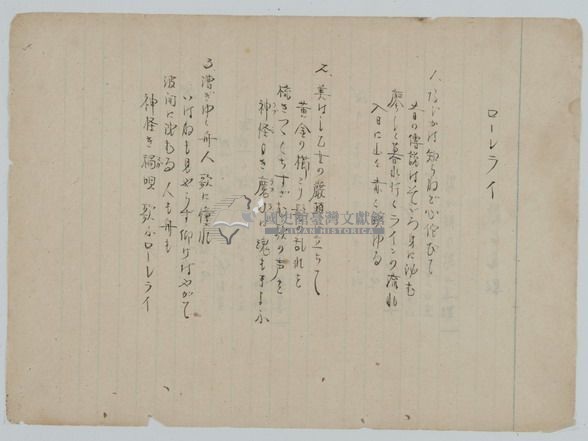 ローレライ
一、なじかは知らねど心侘びて
昔の傳説はそゞろ身に沁む
寥しく暮れ行くラインの流れ
入日に山々赤く映ゆる
二、美はし乙女の巖頭に立ちて
黄金の櫛とり髪の乱れを
梳きつゝくちずさむ歌の声の
神怪き魔力に魂もまよふ
三、漕ぎゆく舟人歌に憧れ
岩根も見やらず仰げばやがて
波間に沈むる人も舟も
神怪き禍唄歌ふローレライ
國史館臺灣文獻館
TAIWAN HISTORICA